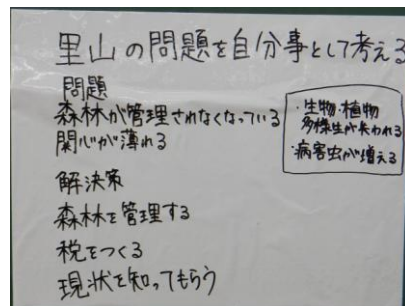 里山の問題を自分事として考える
問題
森林が管理されなくなっている
関心が薄れる
・生物・植物
多様生が失われる
・病害虫が増える
解決策
森林を管理する
税をつくる
現状を知ってもらう